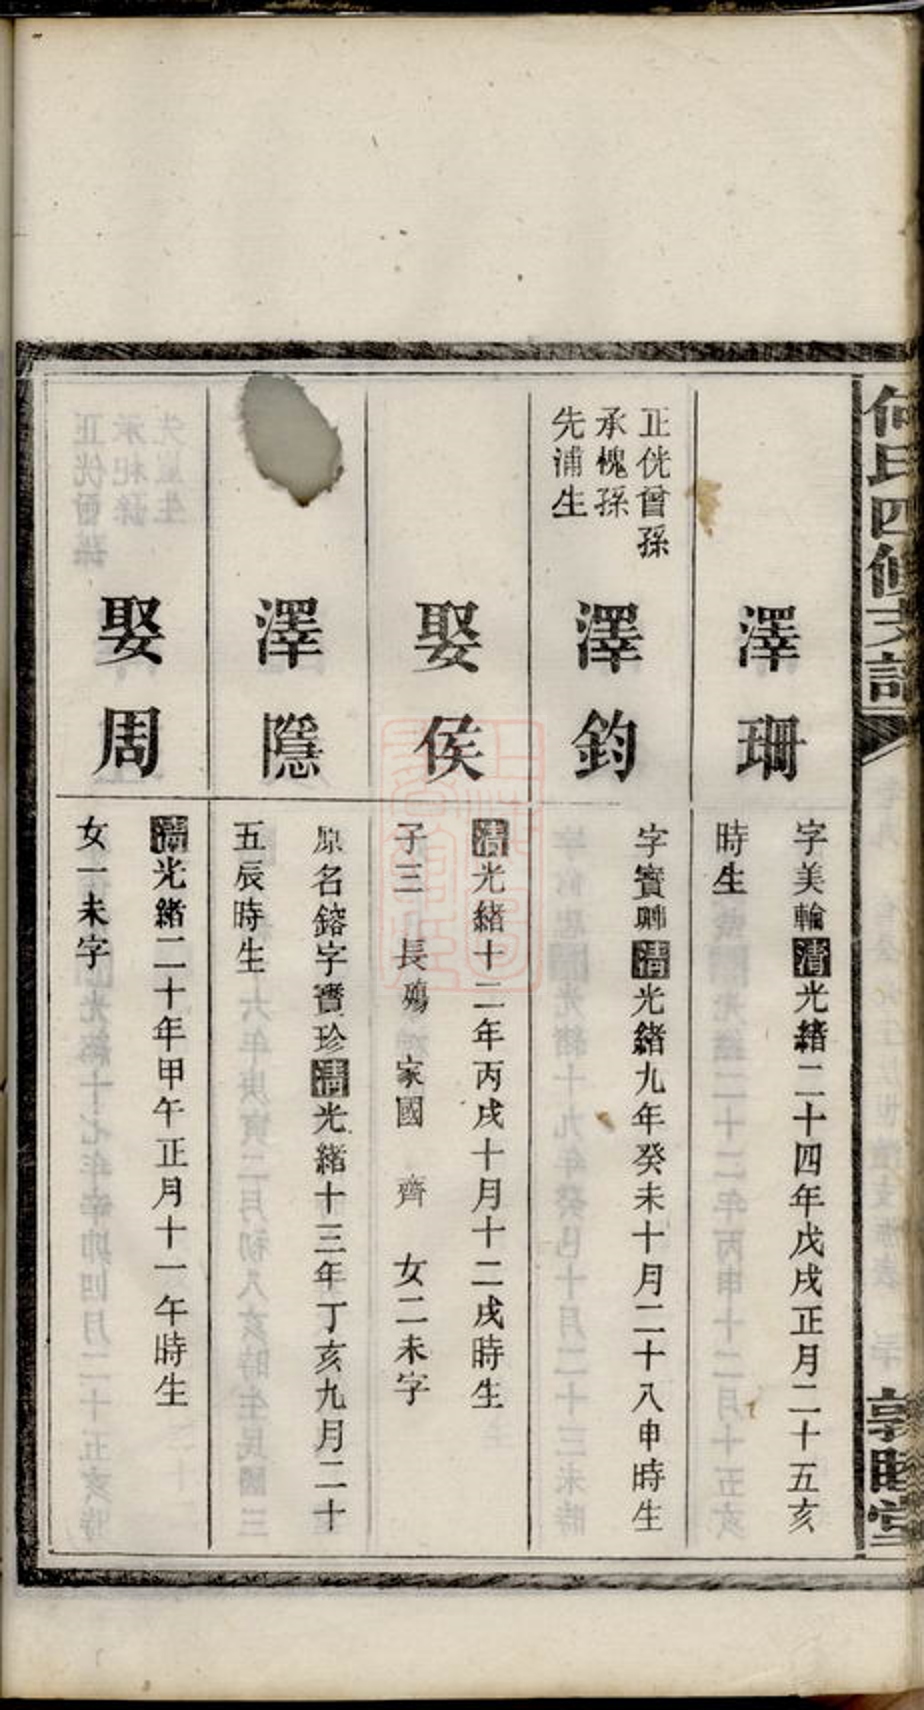 何氏四修支譜
敦睦堂
澤珊
字美輪清光緒二十四年戊戌正月二十五亥
時生
正侊曾孫
承槐孫
先浦生
澤鈞
字寶卿清光緒九年癸未十月二十八申時生
娶侯
清光緒十二年丙戌十月十二戌時生
子三 長殤 家國 齊 女二未字
澤隱
原名鎔字寶珍清光緒十三年丁亥九月二十
五辰時生
娶周
清光緒二十年甲午正月十一午時生
女一未字